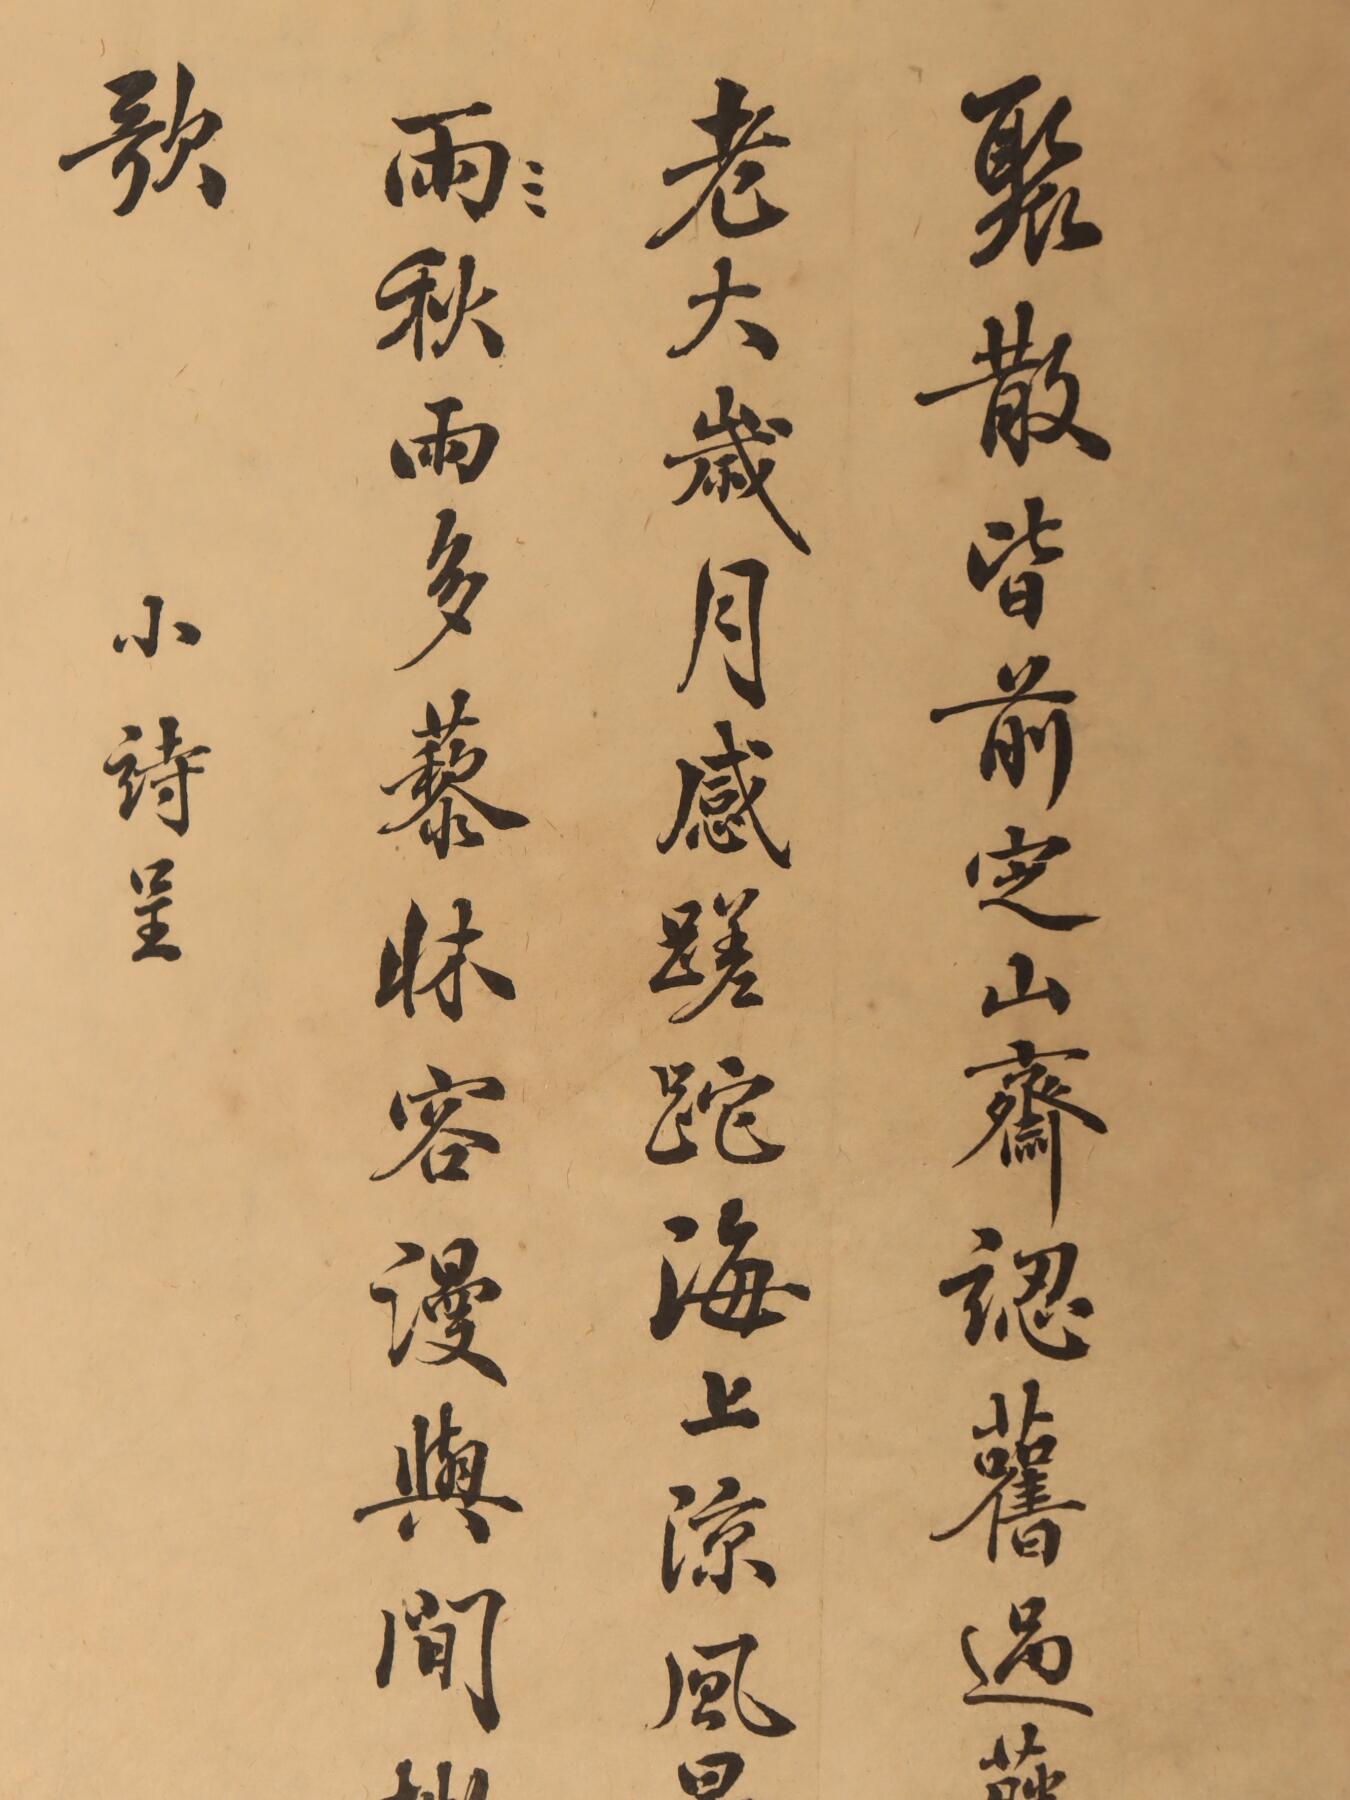 聚散皆前定山齋認舊過
老大歲月感蹉跎海上涼風
雨秋雨多藜牀容漫與閒
歌
小詩呈